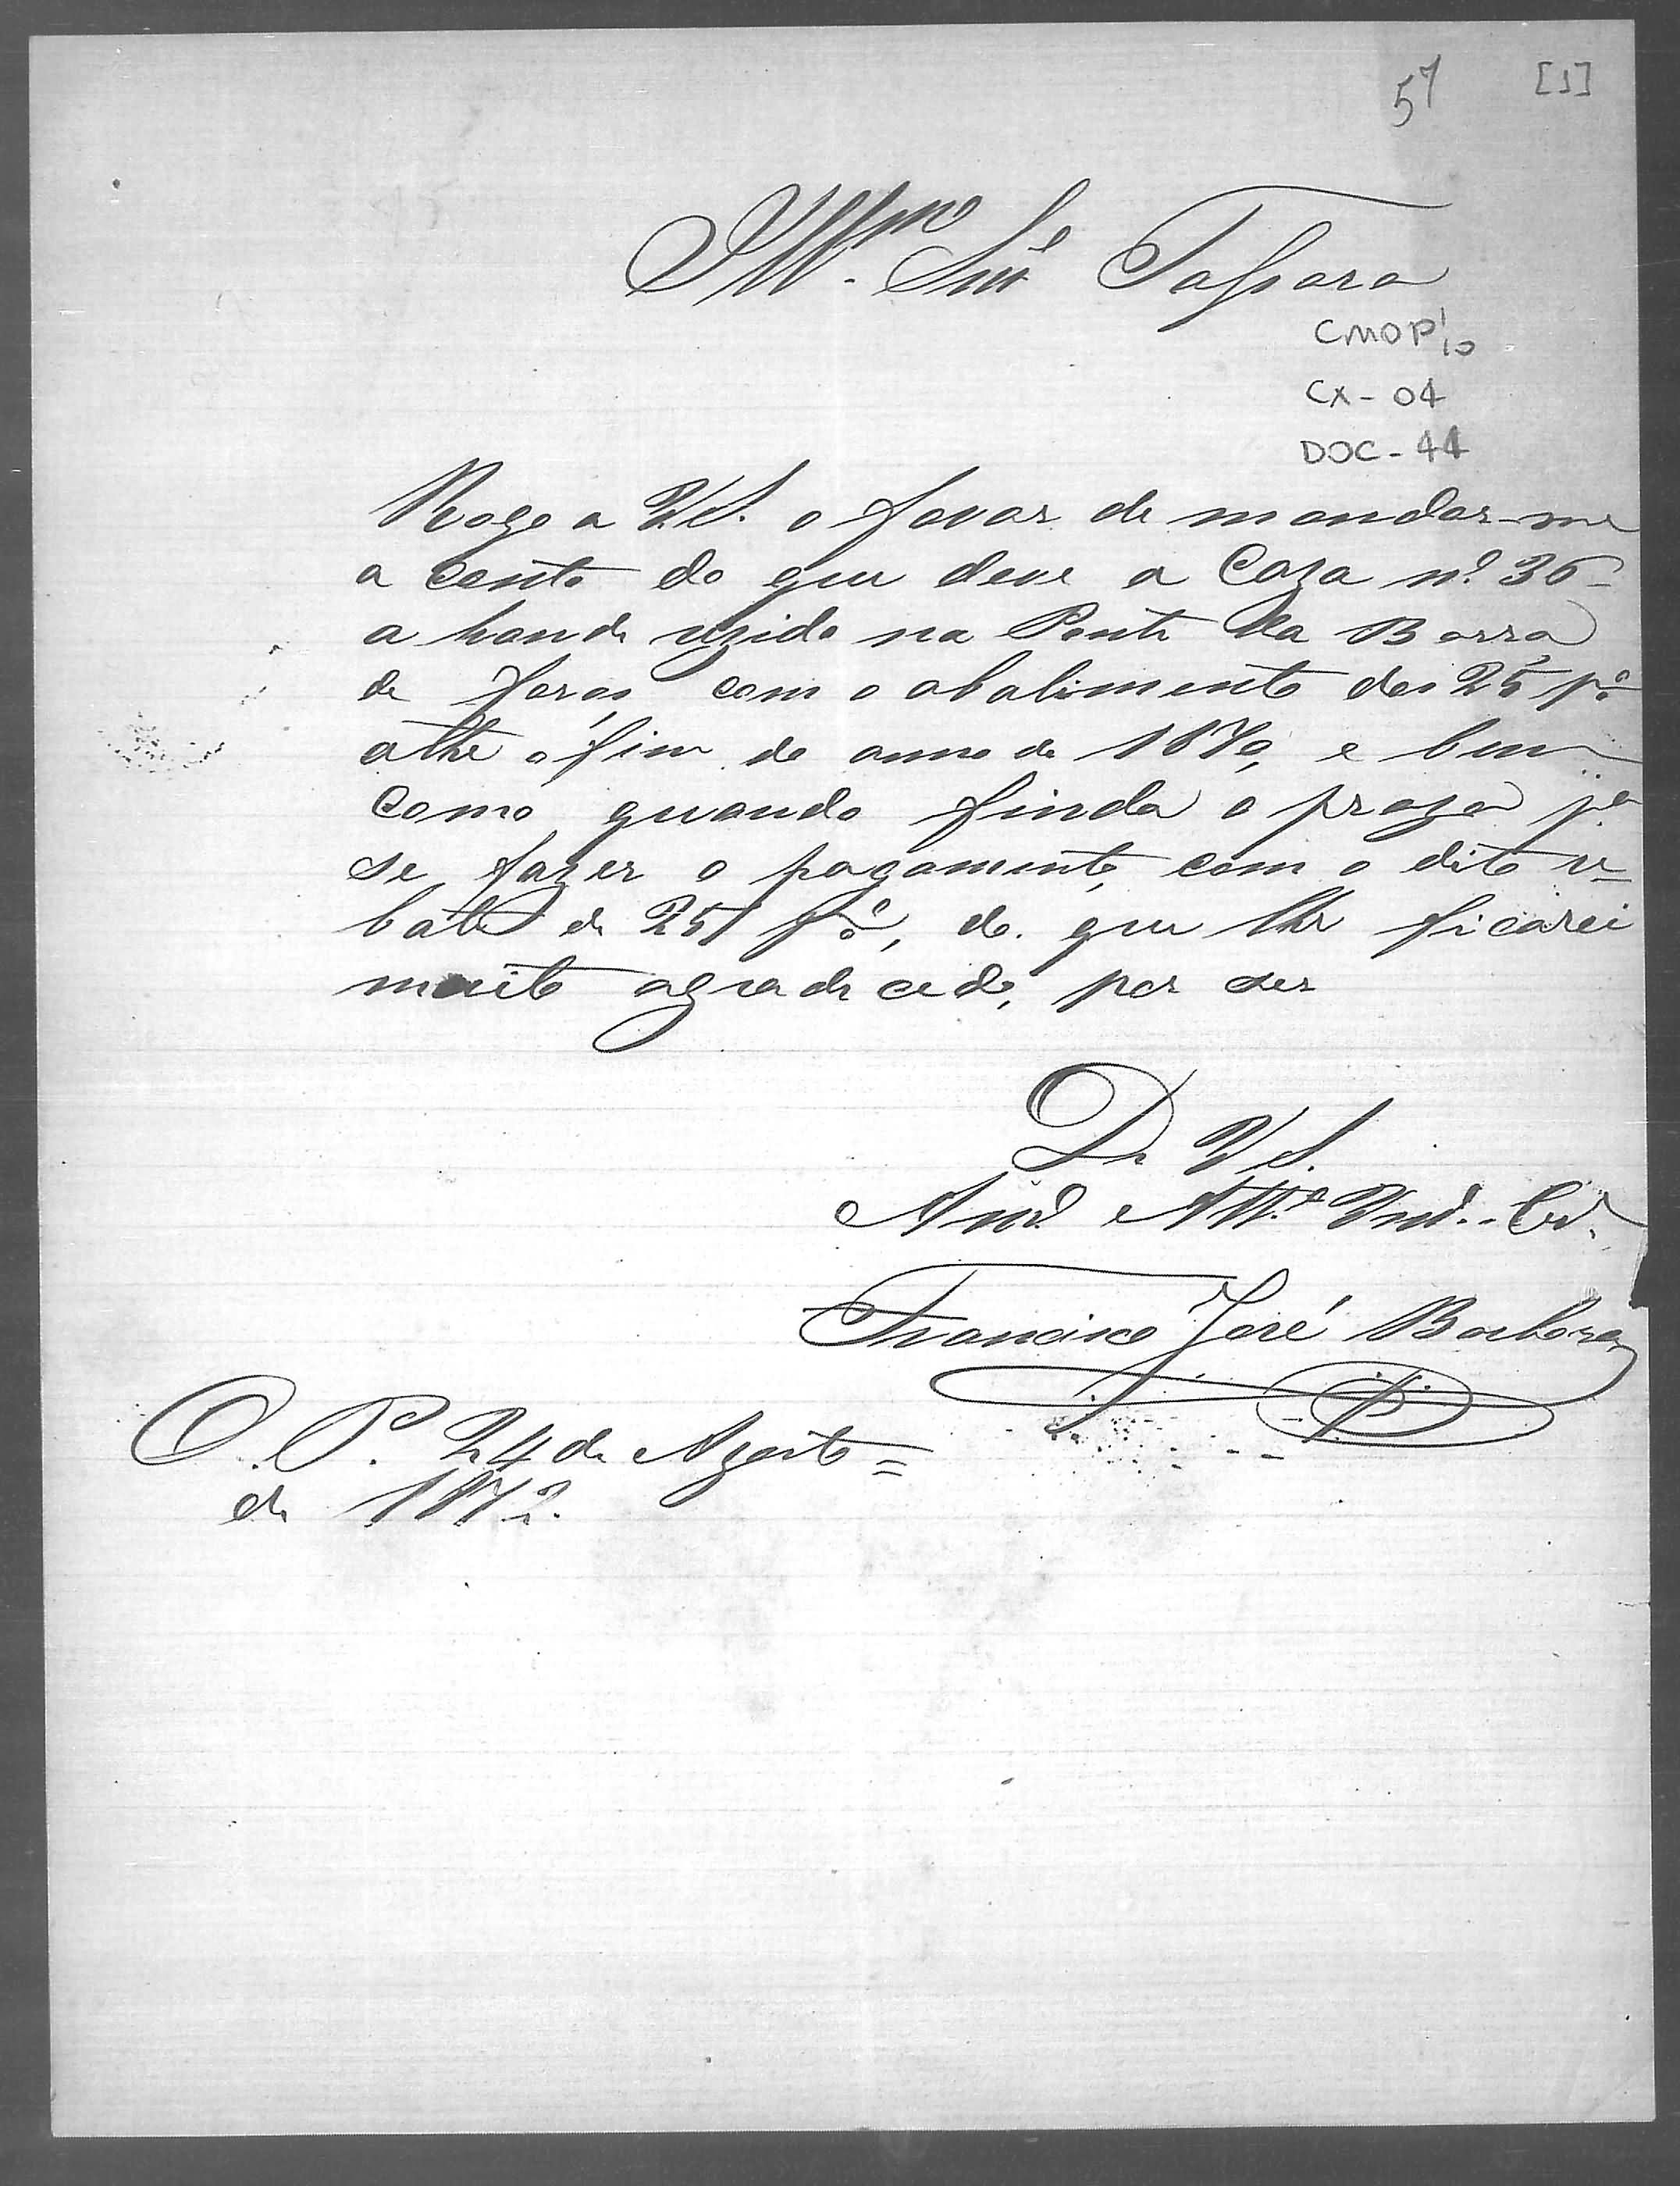 57 [1]
Illmo. Snr Tassara
CMOP 1/10
CX - 04
DOC - 44
Rogo a VS. o favor de mandar-me
a conta do que deve a Caza nº 36
a honde rezido na Ponte da Barra
de foros, com o abatimento dos 25 p%
athe o fim do anno de 1870, e bem
como quando finda o prazo pa
se fazer o pagamento, com o dito re=
bate de 25 p%, do que lhe ficarei
muito agradecido, por ser
De VS.
Amo Atto Vnd.. Cr.
Francisco José Barboza
O. P. 24 de Agosto =
de 1872.